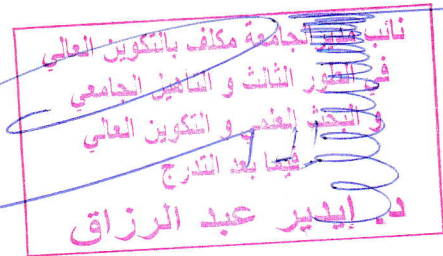 نائب مدير الجامعة مكلف بالتكوين العالي
في الطور الثالث و التأهيل الجامعي
و البحث العلمي و التكوين العالي
فيما بعد التدرج
د. إيدير عبد الرزاق